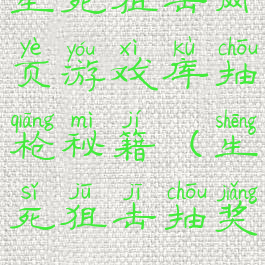 生死狙击网
yè yóu xì kù chōu
页游戏库抽
qiāng mì jí shēng
枪秘籍(生
sǐ jū jī chōu jiǎng
死狙击抽奖